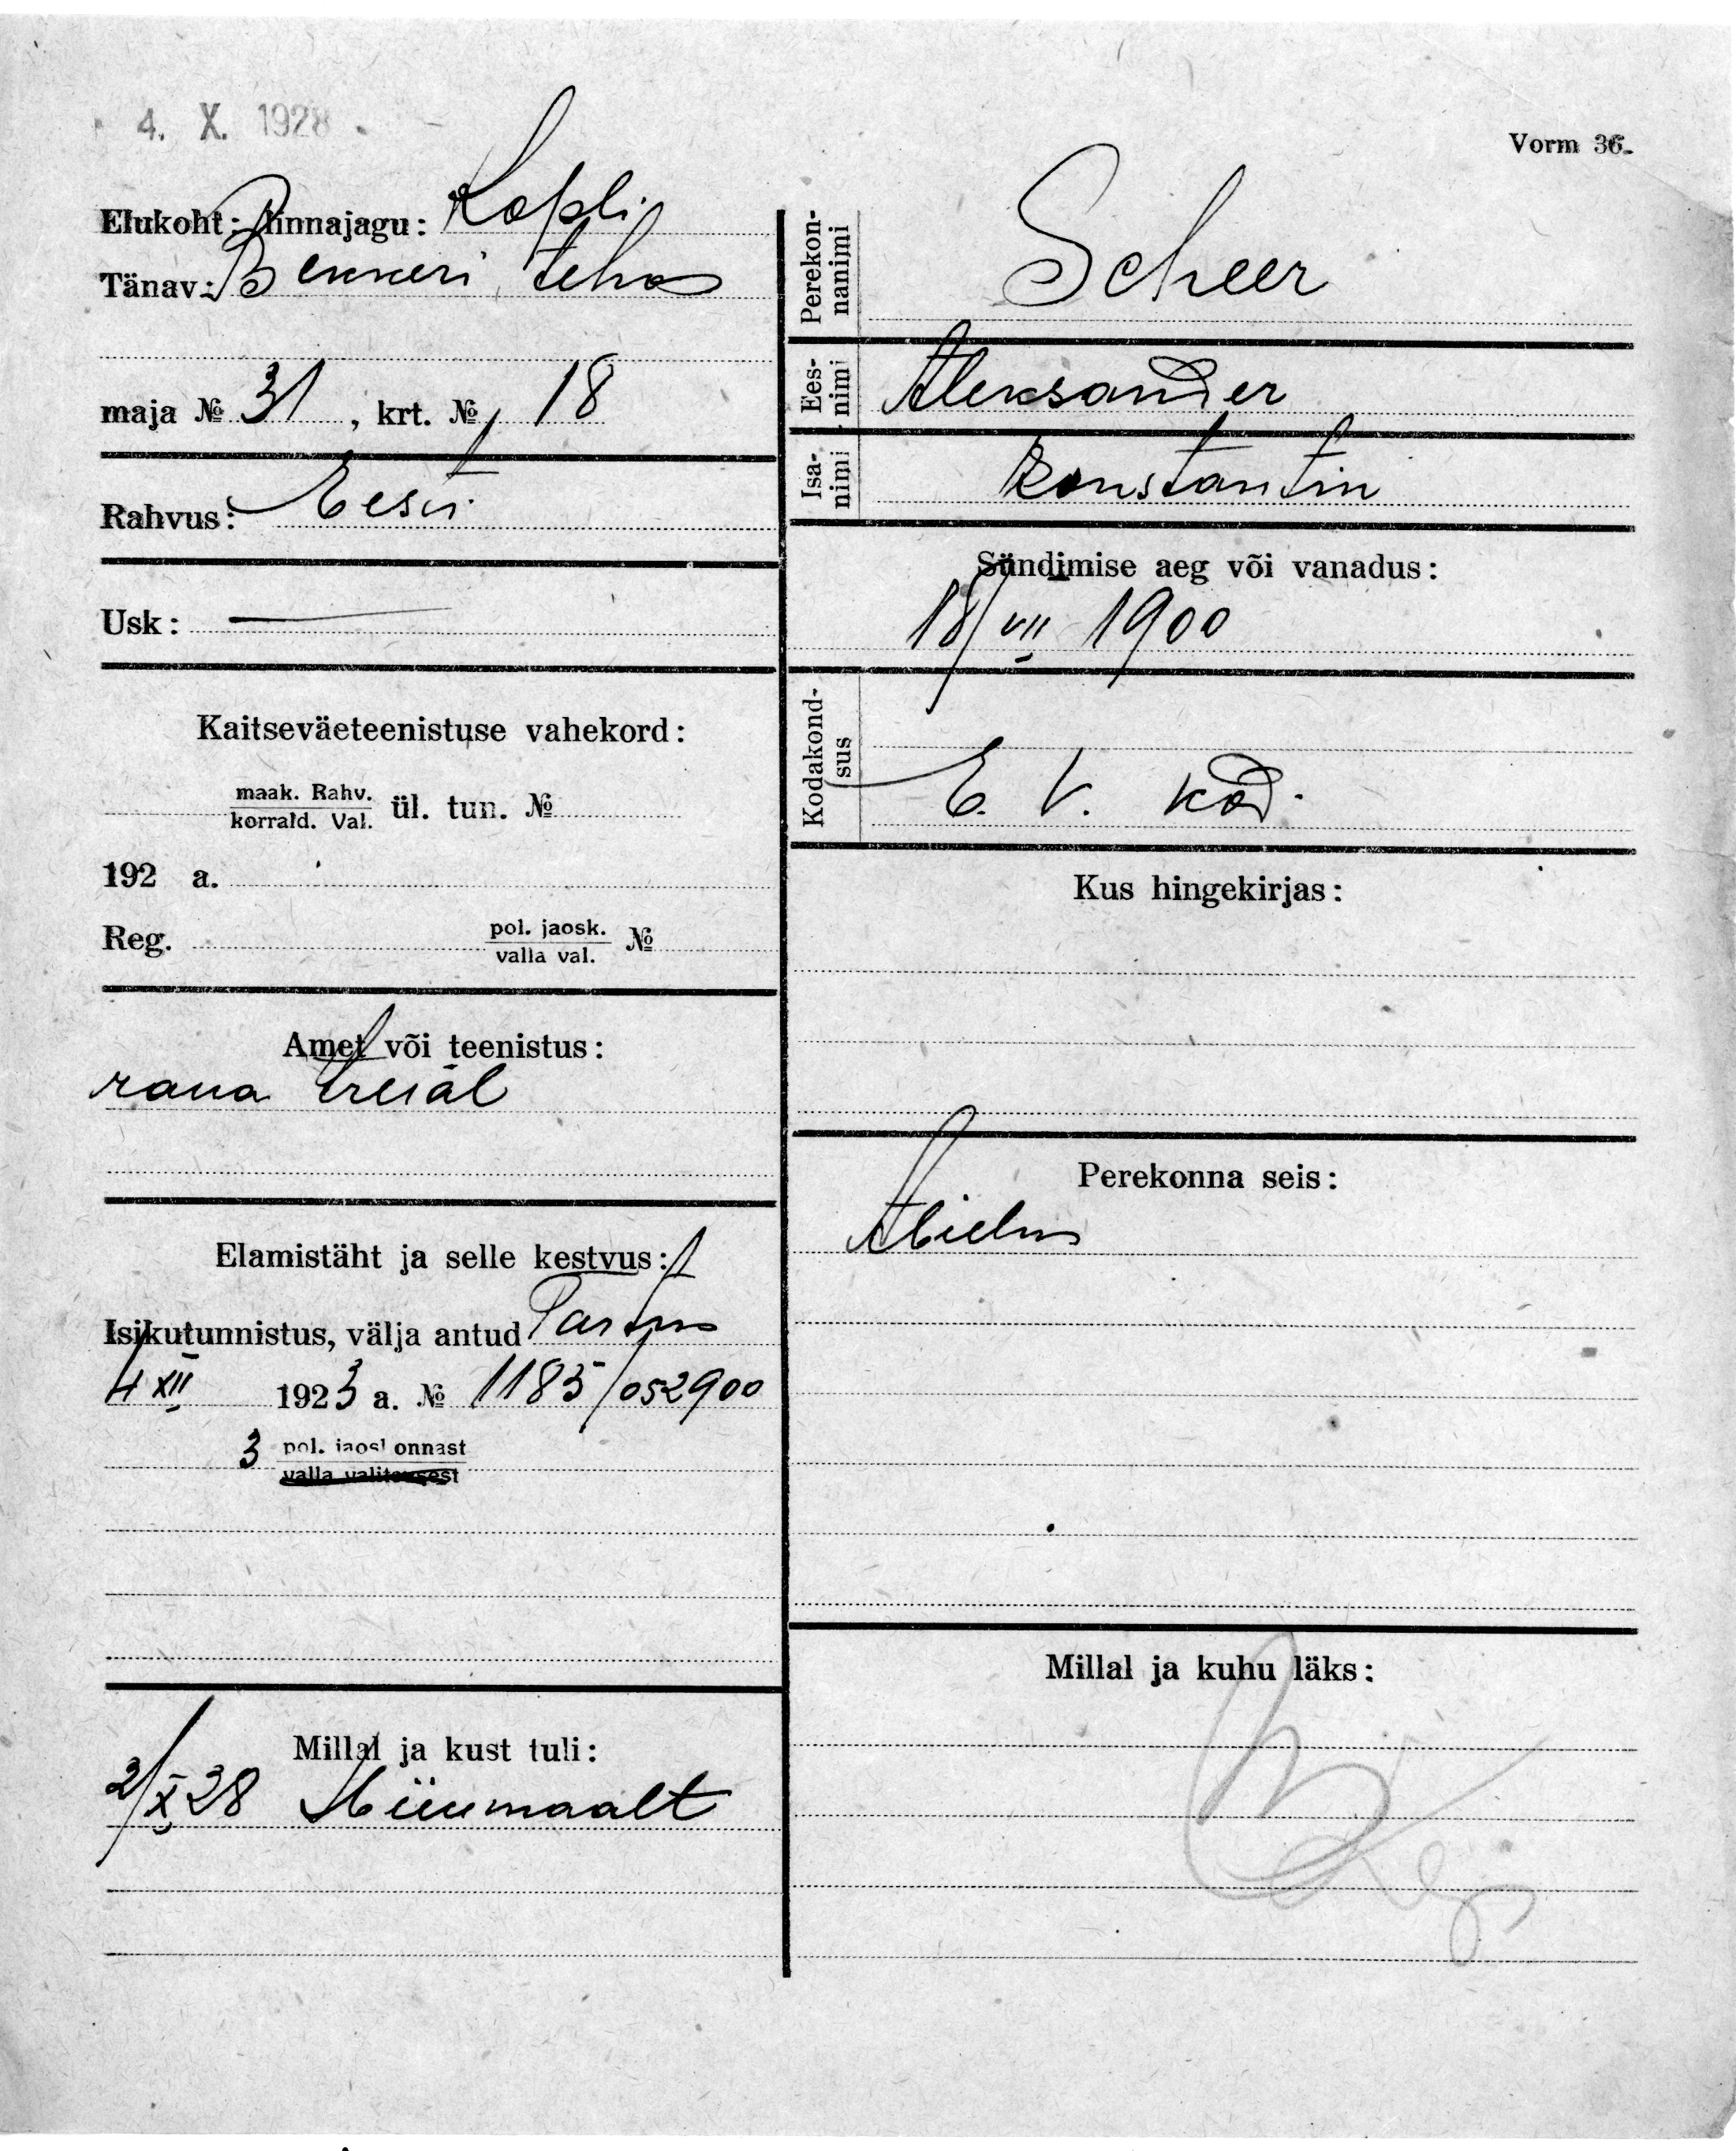 4. X. 1928
Vorm 36.
Elukoht: Linnajagu: Kopli
Tänav: Bekkeri tehas
maja № 31, krt. № 18
Rahvus: Eesti
Usk: —
Kaitseväeteenistuse vahekord:
maak. Rahv.
korrald. Val. ül. tun. №
192 a.
Reg. pol. jaosk. №
valla val.
Amet või teenistus:
raua treial
Elamistäht ja selle kestvus:
Isikutunnistus, välja antud Tartus
4 XII 1923 a. № 1185/052900
3 pol. jaoskonnast
valla valitsusest
Millal ja kust tuli:
2/X 28 Hiiumaalt
Perekon-
nanimi Scheer
Ees-
nimi Aleksander
Isa-
nimi Konstantin
Sündimise aeg või vanadus:
18/VII 1900
Kodakond-
sus E. V. kod.
Kus hingekirjas:
Perekonna seis:
Abielus
Millal ja kuhu läks: